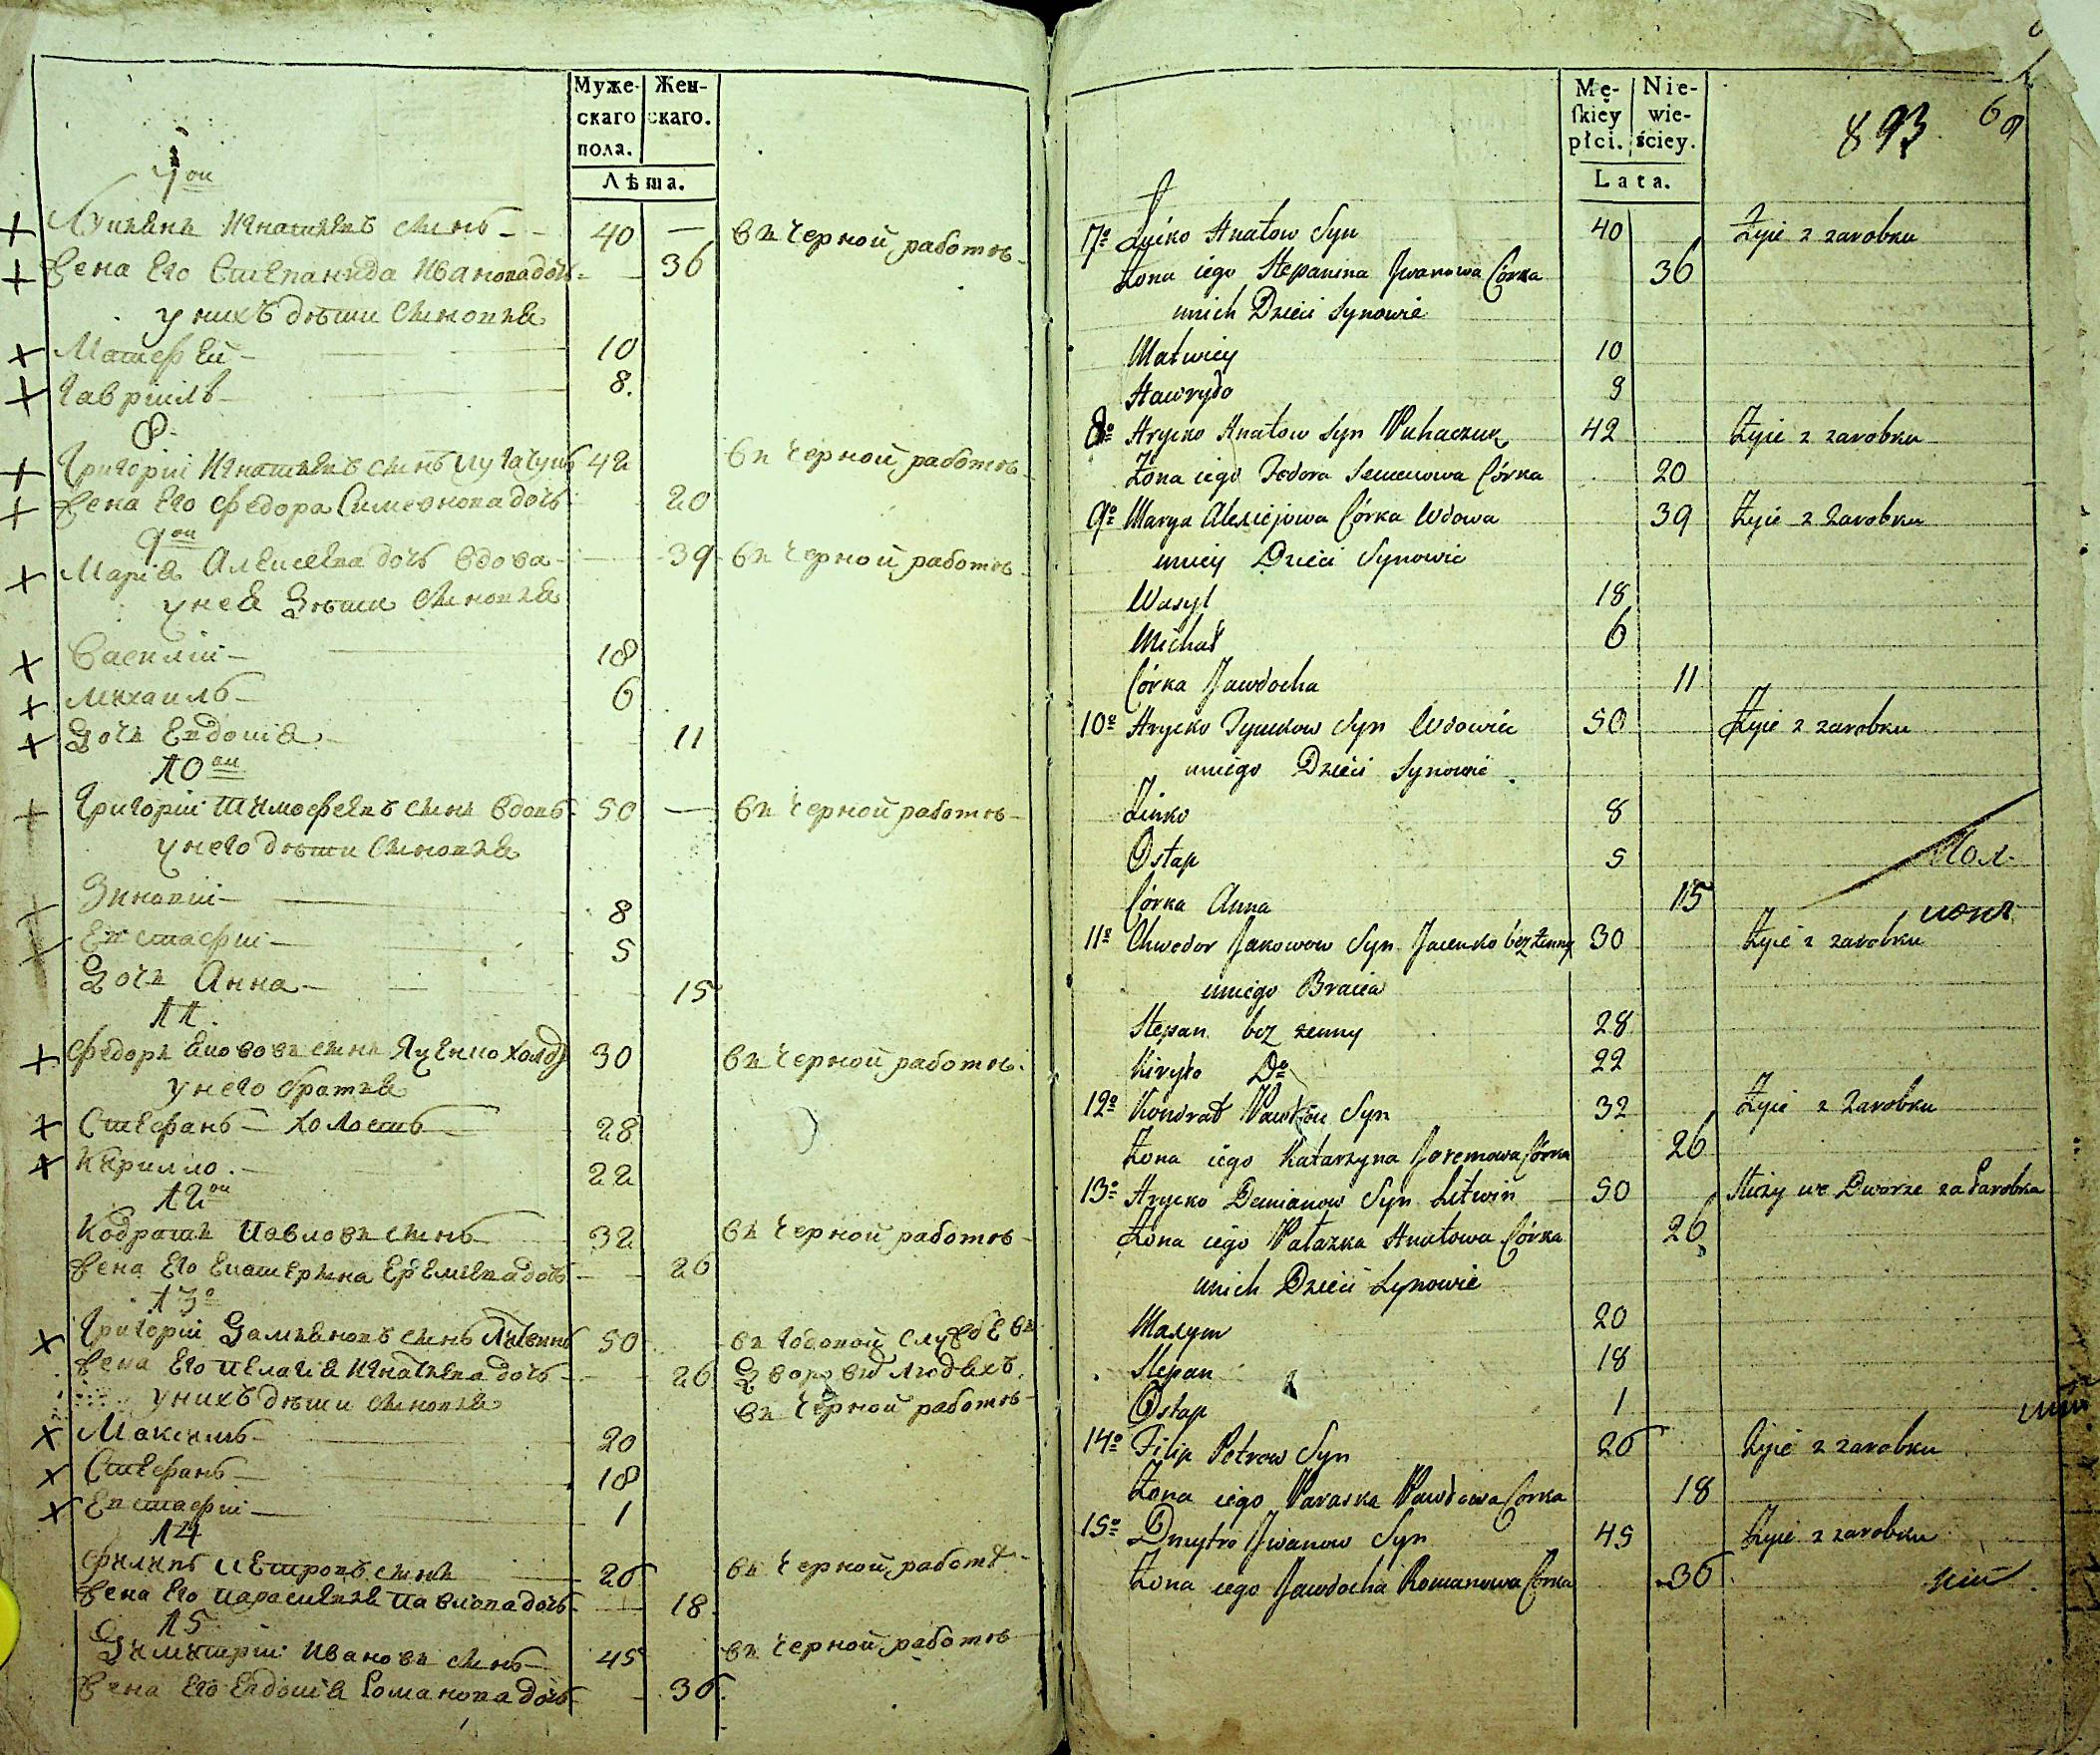 Муже-
скаго
пола.
Жен-
скаго.
Лѣта.
7ои
Лукьянъ Игнатьевъ сынъ 40 — въ черной работѣ
Жена Его Степанида Иванова дочь 36
у нихъ дѣти сыновья
Матфей 10
Гавріилъ 8.
8
Григорій Игнатьевъ сынъ 42 въ черной работѣ
Жена Его Федора Симеонова дочь 20
9ои
Марія Алексеева дочь вдова 39 въ черной работѣ
у нея дѣти сыновья
Василій 18
Михаилъ 6
дочь Евдокія 11
10ои
Григорій Тимофеевъ сынъ вдовъ 50 — въ черной работѣ
у него дѣти сыновья
Зиновій 8
Евстафій 5
дочь Анна 15
11.
Федоръ Якововъ сынъ Яценко 30 въ черной работѣ
у него братья
Стефанъ холостъ 28
Кирилло 22
12ои
Кодратъ Павловъ сынъ 32 въ черной работѣ
Жена Его Екатерина Еремеева дочь 26
13о
Григорій Дамьяновъ сынъ Литвинъ 50 въ годовой службе въ
Жена Его Пелагія Игнатьева дочь 26 дворовыхъ людяхъ.
у нихъ дѣти сыновья въ черной работѣ
Максимъ 20
Стефанъ 18
Евстафій 1
14
Филипъ Петровъ сынъ 26 въ черной работѣ
Жена Его Параскевья Павлова дочь 18
15
Димитрій Ивановъ сынъ 45 въ черной работѣ
Жена Его Евдокія Романова дочь 36.
Mę-
ſkiey
płci.
Nie-
wie-
ściey.
Lata.
893
69
7o Łućko Hnatow Syn 40 Żyie z zarobku
Żona iego Stepanina Jwanowa Córka 36
unich Dzieci Synowie
Matwiey 10
Hawryło 9
8o Hrycko Hnatow Syn Puhaczuk 42 Żyie z zarobku
Żona iego Fedora Semenowa Córka 20
9o Marya Alexiejowa Córka Wdowa 39 Żyie z zarobku
uniey Dzieci Synowie
Wasyl 18
Michał 6
Córka Jawdocha 11
10o Hrycko Tymkow Syn Wdowiec 50 Żyie z zarobku
uniego Dzieci Synowie
Zinko 8
Ostap 5
Córka Anna 15
11o Chwedor Jakowow Syn Jacenko bez Żenny 30 Żyie z zarobku
uniego Bracia
Stepan bez zenny 28
Kiryło Do 22
12o Kondrat Pawłow Syn 32 Żyie z Zarobku
Żona iego Katarzyna Jaremowa Córka 26
13o Hrycko Demianow Syn Litwin 50 Służy we Dworze za Parobka
Żona iego Pałazka Hnatowa Córka 26
unich Dzieci Synowie
Maxym 20
Stepan 18
Ostap 1
14o Filip Petrow Syn 26 Żyie z zarobku
Żona iego Paraska Pawłowa Córka 18
15o Dmytro Jwanow Syn 45 Żyie z zarobku
Żona iego Jawdocha Romanowa Córka 36